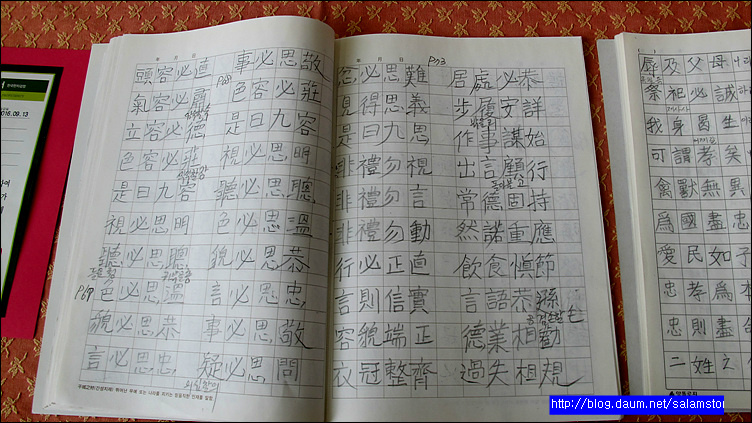 2016.09.13
年 月 日
頭容必直
氣容必肅
立容必德
色容必莊
是曰九容
視必思明
聽必思聰
P69
色必思溫
貌必思恭
言必思忠
事必思敬
P68
色容必莊
是曰九容
視必思明
聽必思聰
色必思溫
貌必思恭
言必思忠
事必思敬
疑必思問
年 月 日
P73
忿必思難
見得思義
是曰九思
非禮勿視
非禮勿言
非禮勿動
行必正直
言則信實
容貌端正
衣冠整齊
居處必恭
步履安詳
作事謀始
出言顧行
常德固持
然諾重應
飮食愼節
言語恭遜
德業相勸
過失相規
辱及父母
祭祀必誠
我身曷生
可謂孝矣
禽獸無異
爲國盡忠
愛民如子
忠孝爲本
忠則盡
二姓之
http://blog.daum.net/salamstor